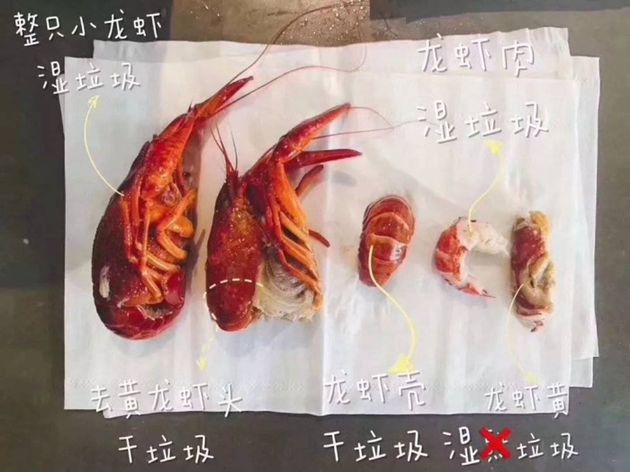 整只小龙虾
湿垃圾
龙虾肉
湿垃圾
去黄龙虾头
干垃圾
龙虾壳
干垃圾
龙虾黄
湿垃圾